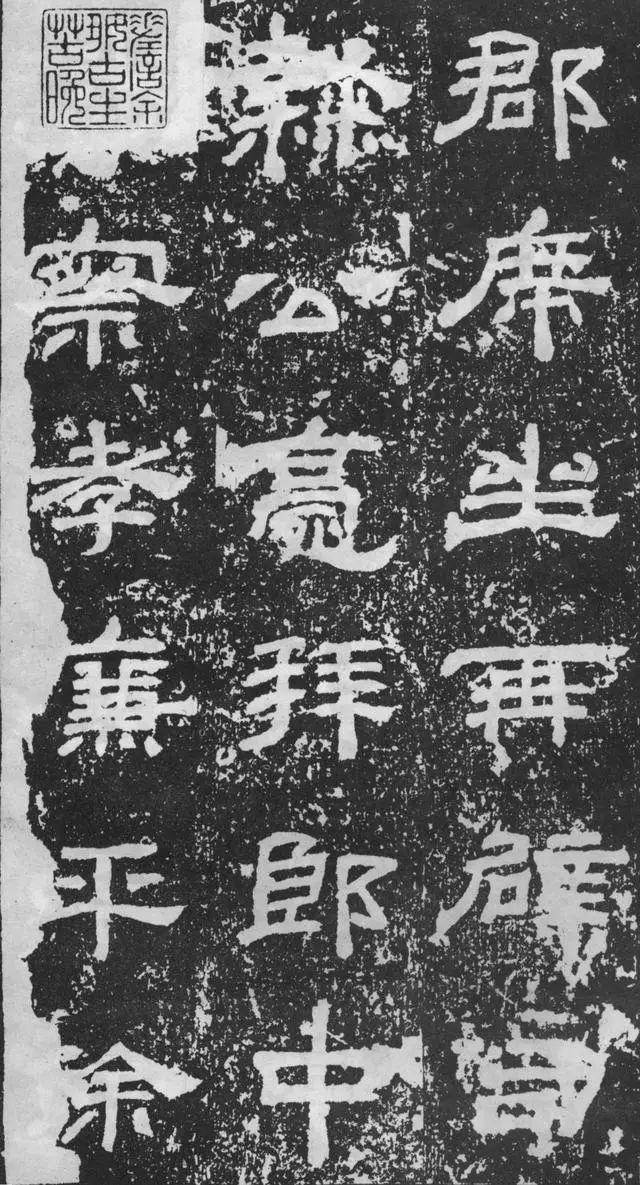 郡席坐再辟司
隸公亮拜郎中
察孝廉平余